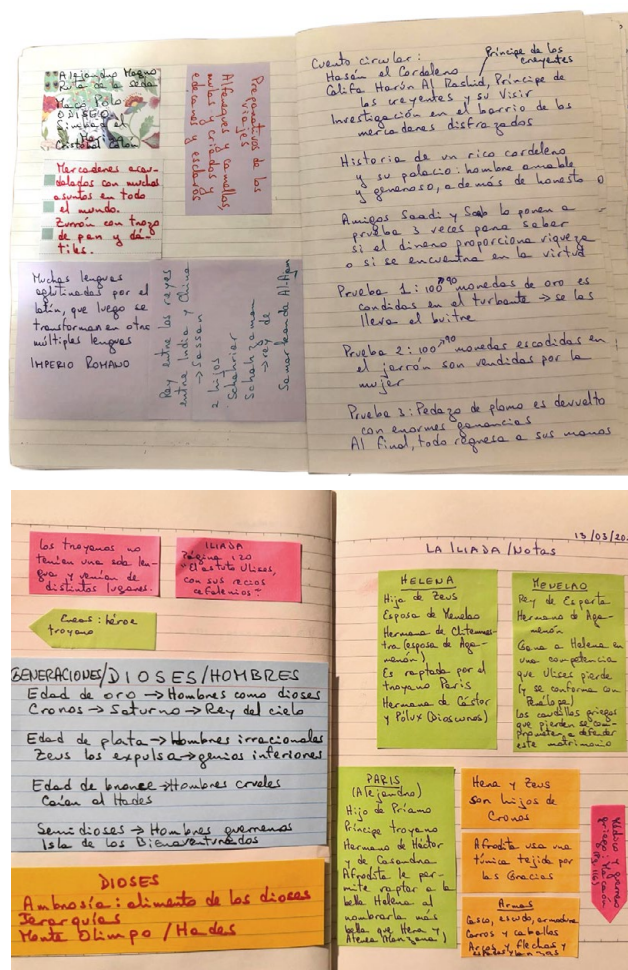 Alejandro Magno
Ruta de la seda
Marco Polo
ODISEO
Simbad el
Marino
Cristóbal Colón
Mercaderes acau-
dalados con muchos
asuntos en todo
el mundo.
Zurrón con trozo
de pan y dá-
tiles.
Preparativos de los
viajes
Alforjas y camellos,
mulas y criados y
eunucos y esclavos
Muchas lenguas
aglutinadas por el
latín, que luego se
transforman en otras
múltiples lenguas
IMPERIO ROMANO
Rey entre los reyes
entre India y China
→ Sassan
2 hijos
Schahriar
Schahzaman
→ rey de
Samarkanda Al-Ajam
Cuento circular:
Príncipe de los
creyentes
Hasán el Cordelero
Califa Harún Al Rashid, Príncipe de
los creyentes y su Visir
Investigación en el barrio de los
mercaderes disfrazados
Historia de un rico cordelero
y su palacio: hombre amable
y generoso, además de honesto
Amigos Saadi y Sab lo ponen a
prueba 3 veces para saber
si el dinero proporciona riqueza
o si se encuentra en la virtud
Prueba 1: 100 → 90 monedas de oro es
condidas en el turbante → se las
lleva el buitre
Prueba 2: 100 → 90 monedas escodidas en
el jarrón son vendidas por la
mujer
Prueba 3: Pedazo de plomo es devuelto
con enormes ganancias
Al final, todo regresa a sus manos
Los troyanos no
tenían una sola len-
gua y venían de
distintos lugares.
ILIADA
Página 120
"El astuto Ulises,
con sus recios
cefalenios"
Eneas: héroe
troyano
GENERACIONES/DIOSES/HOMBRES
Edad de oro → Hombres como dioses
Cronos → Saturno → Rey del cielo
Edad de plata → Hombres irracionales
Zeus los expulsa → genios inferiores
Edad de bronce → Hombres crueles
Caían al Hades
Semidioses → Hombres guerreros
Isla de los Bienaventurados
DIOSES
Ambrosía: alimento de los dioses
Jerarquías
Monte Olimpo / Hades
13/03/20
LA ILIADA / Notas
HELENA
Hija de Zeus
Esposa de Menelao
Hermana de Clitemnes-
tra (esposa de Aga-
menón)
Es raptada por el
troyano Paris
Hermana de Cástor
y Pólux (Dioscuros)
MENELAO
Rey de Esparta
Hermano de Aga-
menón
Gana a Helena en
una competencia
que Ulises pierde
(y se conforma con
Penélope)
Los caudillos griegos
que pierden se com-
prometen a defender
este matrimonio
PARIS
(Alejandro)
Hijo de Príamo
Príncipe troyano
Hermano de Héctor
y de Casandra
Afrodita le per-
mite raptar a la
bella Helena al
nombrarla más
bella que Hera y
Atenea (Manzana)
Hera y Zeus
son hijos de
Cronos
Afrodita usa una
túnica tejida por
las Gracias
Armas
Casco, escudo, armadura
Carros y caballos
Arcos y flechas y
espadas y lanzas
Médico y guerrero
griego: Macaón